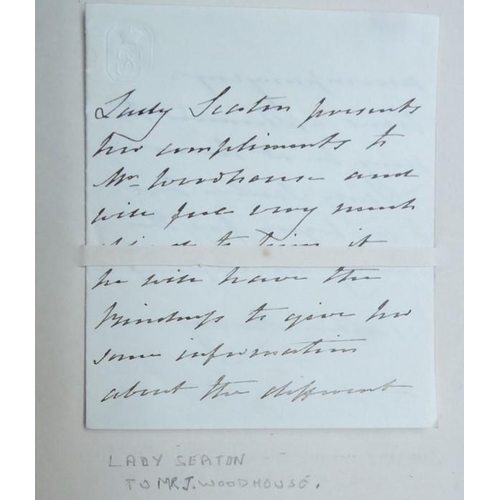 Lady Seaton presents
her compliments to
Mr. Woodhouse and
will feel very much
to him if
he will have the
kindness to give her
some information
about the different
LADY SEATON
TO MR J. WOODHOUSE.